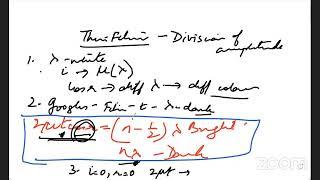 Thin Film - Division of
amplitude
1. λ - white
i → μ(λ)
cos r → diff λ → diff colour
2. googles - Film - t - λ - dark
2μt cos r = (n - 1/2) λ Bright
nλ - Dark
3. i=0, r=0 2μt →
zoom